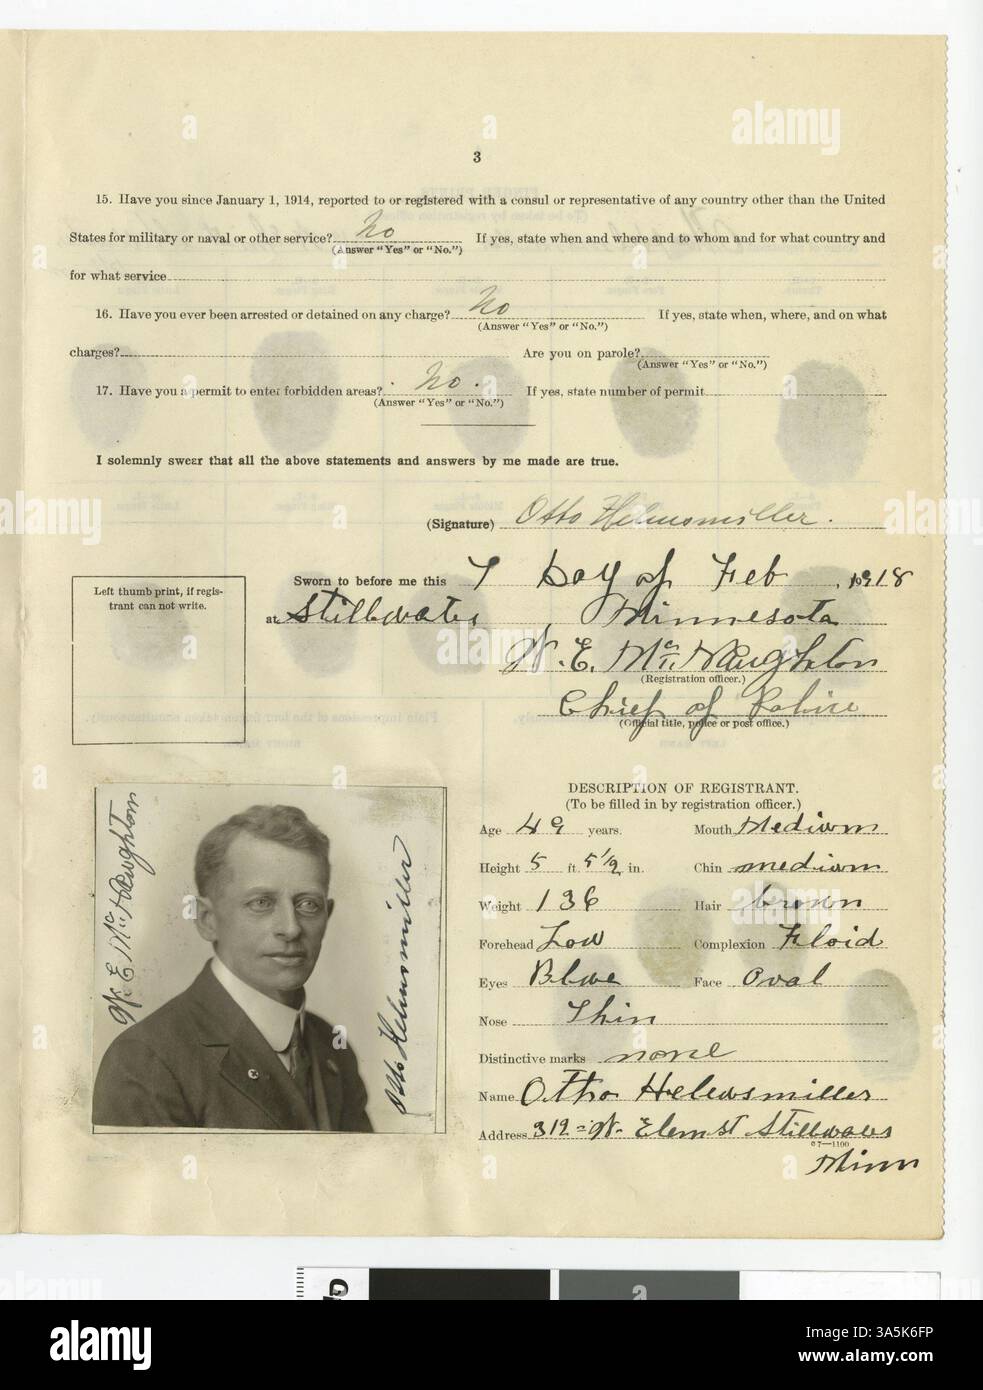 3
15. Have you since January 1, 1914, reported to or registered with a consul or representative of any country other than the United
States for military or naval or other service? No If yes, state when and where and to whom and for what country and
(Answer "Yes" or "No.")
for what service
16. Have you ever been arrested or detained on any charge? No If yes, state when, where, and on what
(Answer "Yes" or "No.")
charges? Are you on parole?
(Answer "Yes" or "No.")
17. Have you a permit to enter forbidden areas? No. If yes, state number of permit
(Answer "Yes" or "No.")
I solemnly swear that all the above statements and answers by me made are true.
(Signature) Otto Helmsmiller.
Sworn to before me this 7 Day of Feb, 1918
at Stillwater Minnesota
W. E. McNaughton
(Registration officer.)
Chief of Police
(Official title, police or post office.)
Left thumb print, if regis-
trant can not write.
W. E. McNaughton
Otto Helmsmiller
DESCRIPTION OF REGISTRANT.
(To be filled in by registration officer.)
Age 49 years. Mouth Medium
Height 5 ft. 5 1/2 in. Chin medium
Weight 136 Hair brown
Forehead Low Complexion Floid
Eyes Blue Face Oval
Nose Thin
Distinctive marks none
Name Otto Helmsmiller
Address 319 = W. Elm St Stillwater
c7—1100
Minn
alamy
Image ID: 3A5K6FP
www.alamy.com